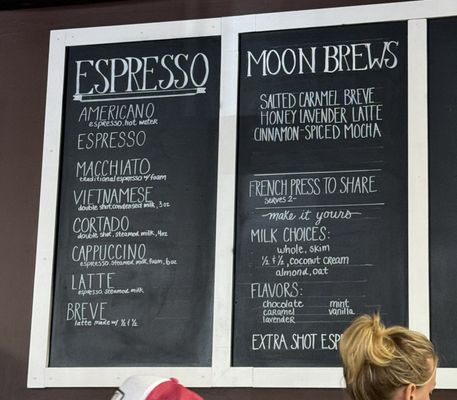 ESPRESSO
AMERICANO
espresso, hot water
ESPRESSO
MACCHIATO
traditional espresso w/ foam
VIETNAMESE
double shot, condensed milk, 3oz
CORTADO
double shot, steamed milk
CAPPUCCINO
espresso, steamed milk, foam, 6oz
LATTE
espresso, steamed milk
BREVE
latte made w/ ½ ½
MOON BREWS
SALTED CARAMEL BREVE
HONEY LAVENDER LATTE
CINNAMON-SPICED MOCHA
FRENCH PRESS TO SHARE
SERVES 2-
make it yours
MILK CHOICES:
whole, skim
½ ½, coconut cream
almond, oat
FLAVORS:
chocolate mint
caramel vanilla
lavender
EXTRA SHOT ESP